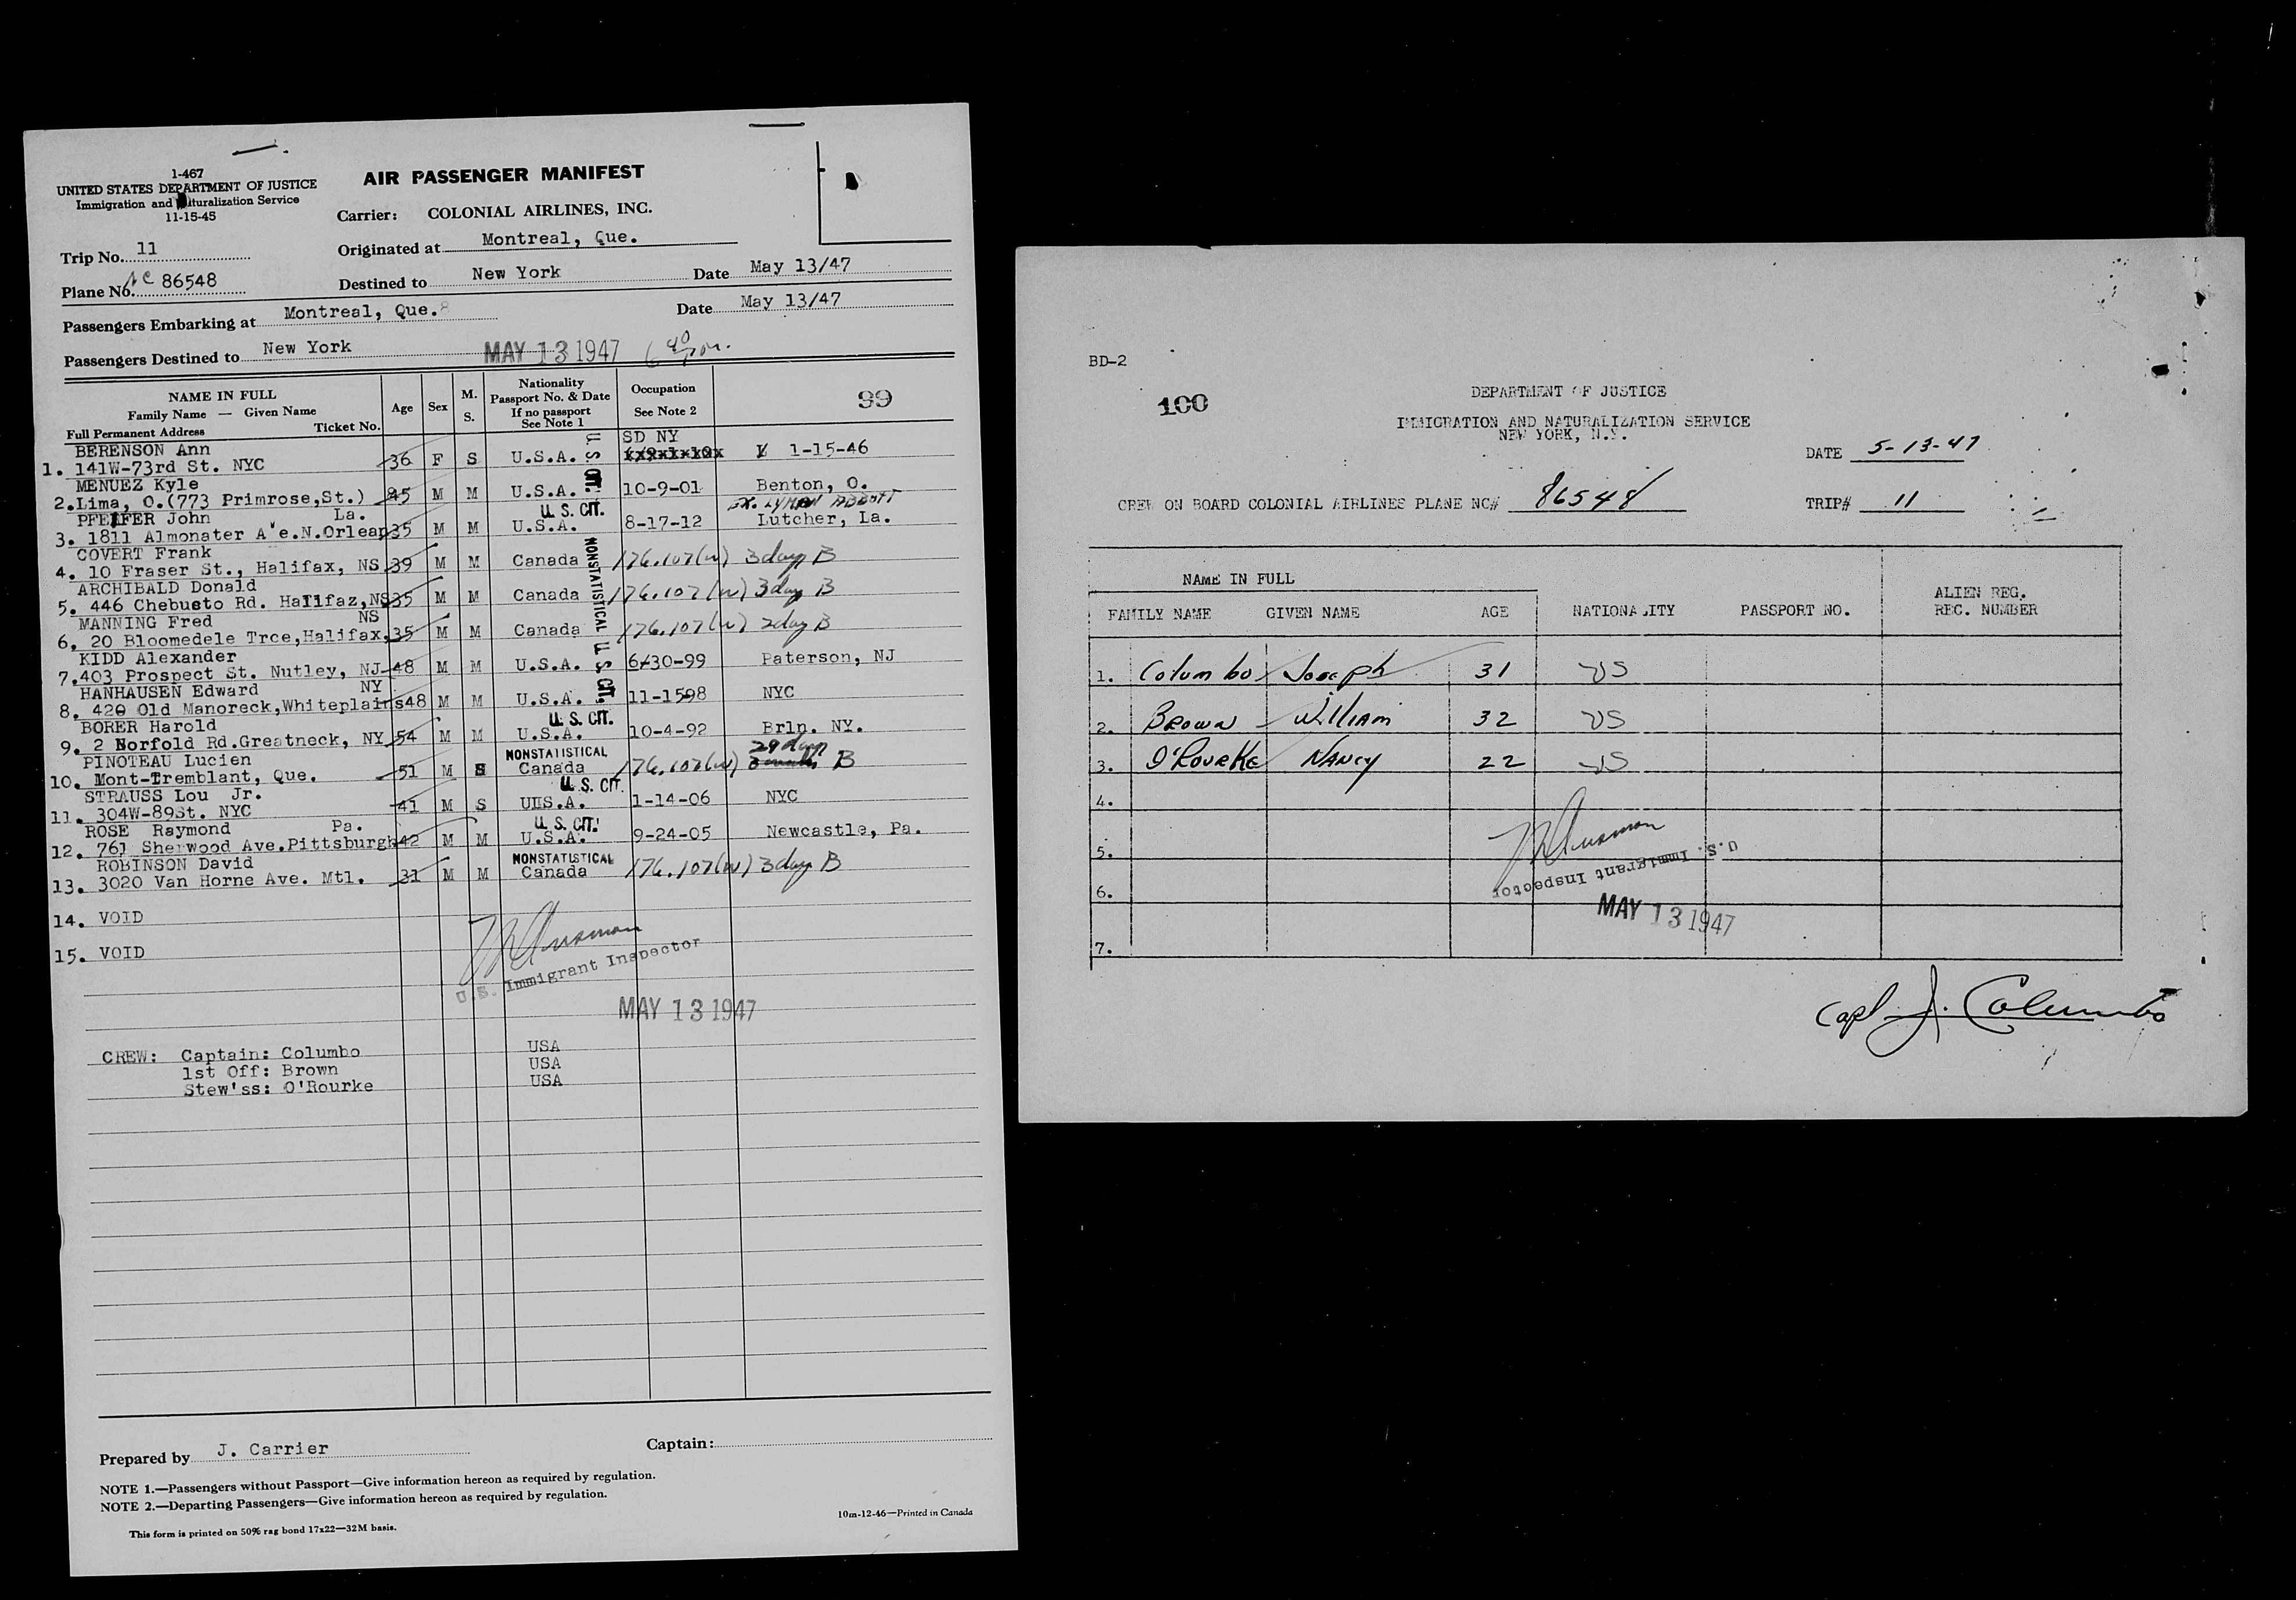 1-467
UNITED STATES DEPARTMENT OF JUSTICE
Immigration and Naturalization Service
11-15-45
AIR PASSENGER MANIFEST
Carrier: COLONIAL AIRLINES, INC.
Trip No. 11
Originated at Montreal, Que.
Plane No. NC 86548
Destined to New York Date May 13/47
Passengers Embarking at Montreal, Que. Date May 13/47
Passengers Destined to New York MAY 13 1947 6 40 pm.
NAME IN FULL
Family Name — Given Name
Full Permanent Address Ticket No.
Age
Sex
M.
S.
Nationality
Passport No. & Date
If no passport
See Note 1
Occupation
See Note 2
99
BERENSON Ann SD NY
1. 141W-73rd St. NYC 36 F S U.S.A. U. S. CIT. 1-15-46
MENUEZ Kyle
2. Lima, O.(773 Primrose,St.) 45 M M U.S.A. 10-9-01 Benton, O.
PFEIFER John La. U. S. CIT. LYMAN ABBOTT
3. 1811 Almonater A've.N.Orlean 35 M M U.S.A. 8-17-12 Lutcher, La.
COVERT Frank
4. 10 Fraser St., Halifax, NS 39 M M Canada NONSTATISTICAL 176.107(w) 3 days B
ARCHIBALD Donald
5. 446 Chebucto Rd. Halifaz,NS 35 M M Canada 176.107(w) 3 days B
MANNING Fred NS
6, 20 Bloomedele Trce,Halifax, 35 M M Canada 176.107(w) 2 days B
KIDD Alexander
7.403 Prospect St. Nutley, NJ 48 M M U.S.A. U. S. CIT. 6-30-99 Paterson, NJ
HANHAUSEN Edward NY
8. 420 Old Manoreck,Whiteplains 48 M M U.S.A. 11-1598 NYC
BORER Harold U. S. CIT.
9. 2 Norfold Rd.Greatneck, NY 54 M M U.S.A. 10-4-92 Brln. NY.
PINOTEAU Lucien NONSTATISTICAL 29 days
10. Mont-Tremblant, Que. 51 M S Canada 176.107(w) B
STRAUSS Lou Jr. U. S. CIT.
11. 304W-89St. NYC 41 M S UIIS.A. 1-14-06 NYC
ROSE Raymond Pa. U. S. CIT.
12. 761 Sherwood Ave.Pittsburgh 42 M M U.S.A. 9-24-05 Newcastle, Pa.
ROBINSON David NONSTATISTICAL
13. 3020 Van Horne Ave. Mtl. 31 M M Canada 176.107(w) 3 days B
14. VOID
15. VOID
U.S. Immigrant Inspector
MAY 13 1947
CREW: Captain: Columbo USA
1st Off: Brown USA
Stew'ss: O'Rourke USA
Prepared by J. Carrier
Captain:
NOTE 1.—Passengers without Passport—Give information hereon as required by regulation.
NOTE 2.—Departing Passengers—Give information hereon as required by regulation.
This form is printed on 50% rag bond 17x22—32M basis.
10m-12-46—Printed in Canada
BD-2
100
DEPARTMENT OF JUSTICE
IMMIGRATION AND NATURALIZATION SERVICE
NEW YORK, N.Y.
DATE 5-13-47
CREW ON BOARD COLONIAL AIRLINES PLANE NC# 86548 TRIP# 11
NAME IN FULL
FAMILY NAME GIVEN NAME AGE NATIONALITY PASSPORT NO. ALIEN REG.
REC. NUMBER
1. Columbo Joseph 31 US
2. Brown William 32 US
3. O'Rourke Nancy 22 US
4.
5.
U.S. Immigrant Inspector
6.
MAY 13 1947
7.
Capt J. Columbo